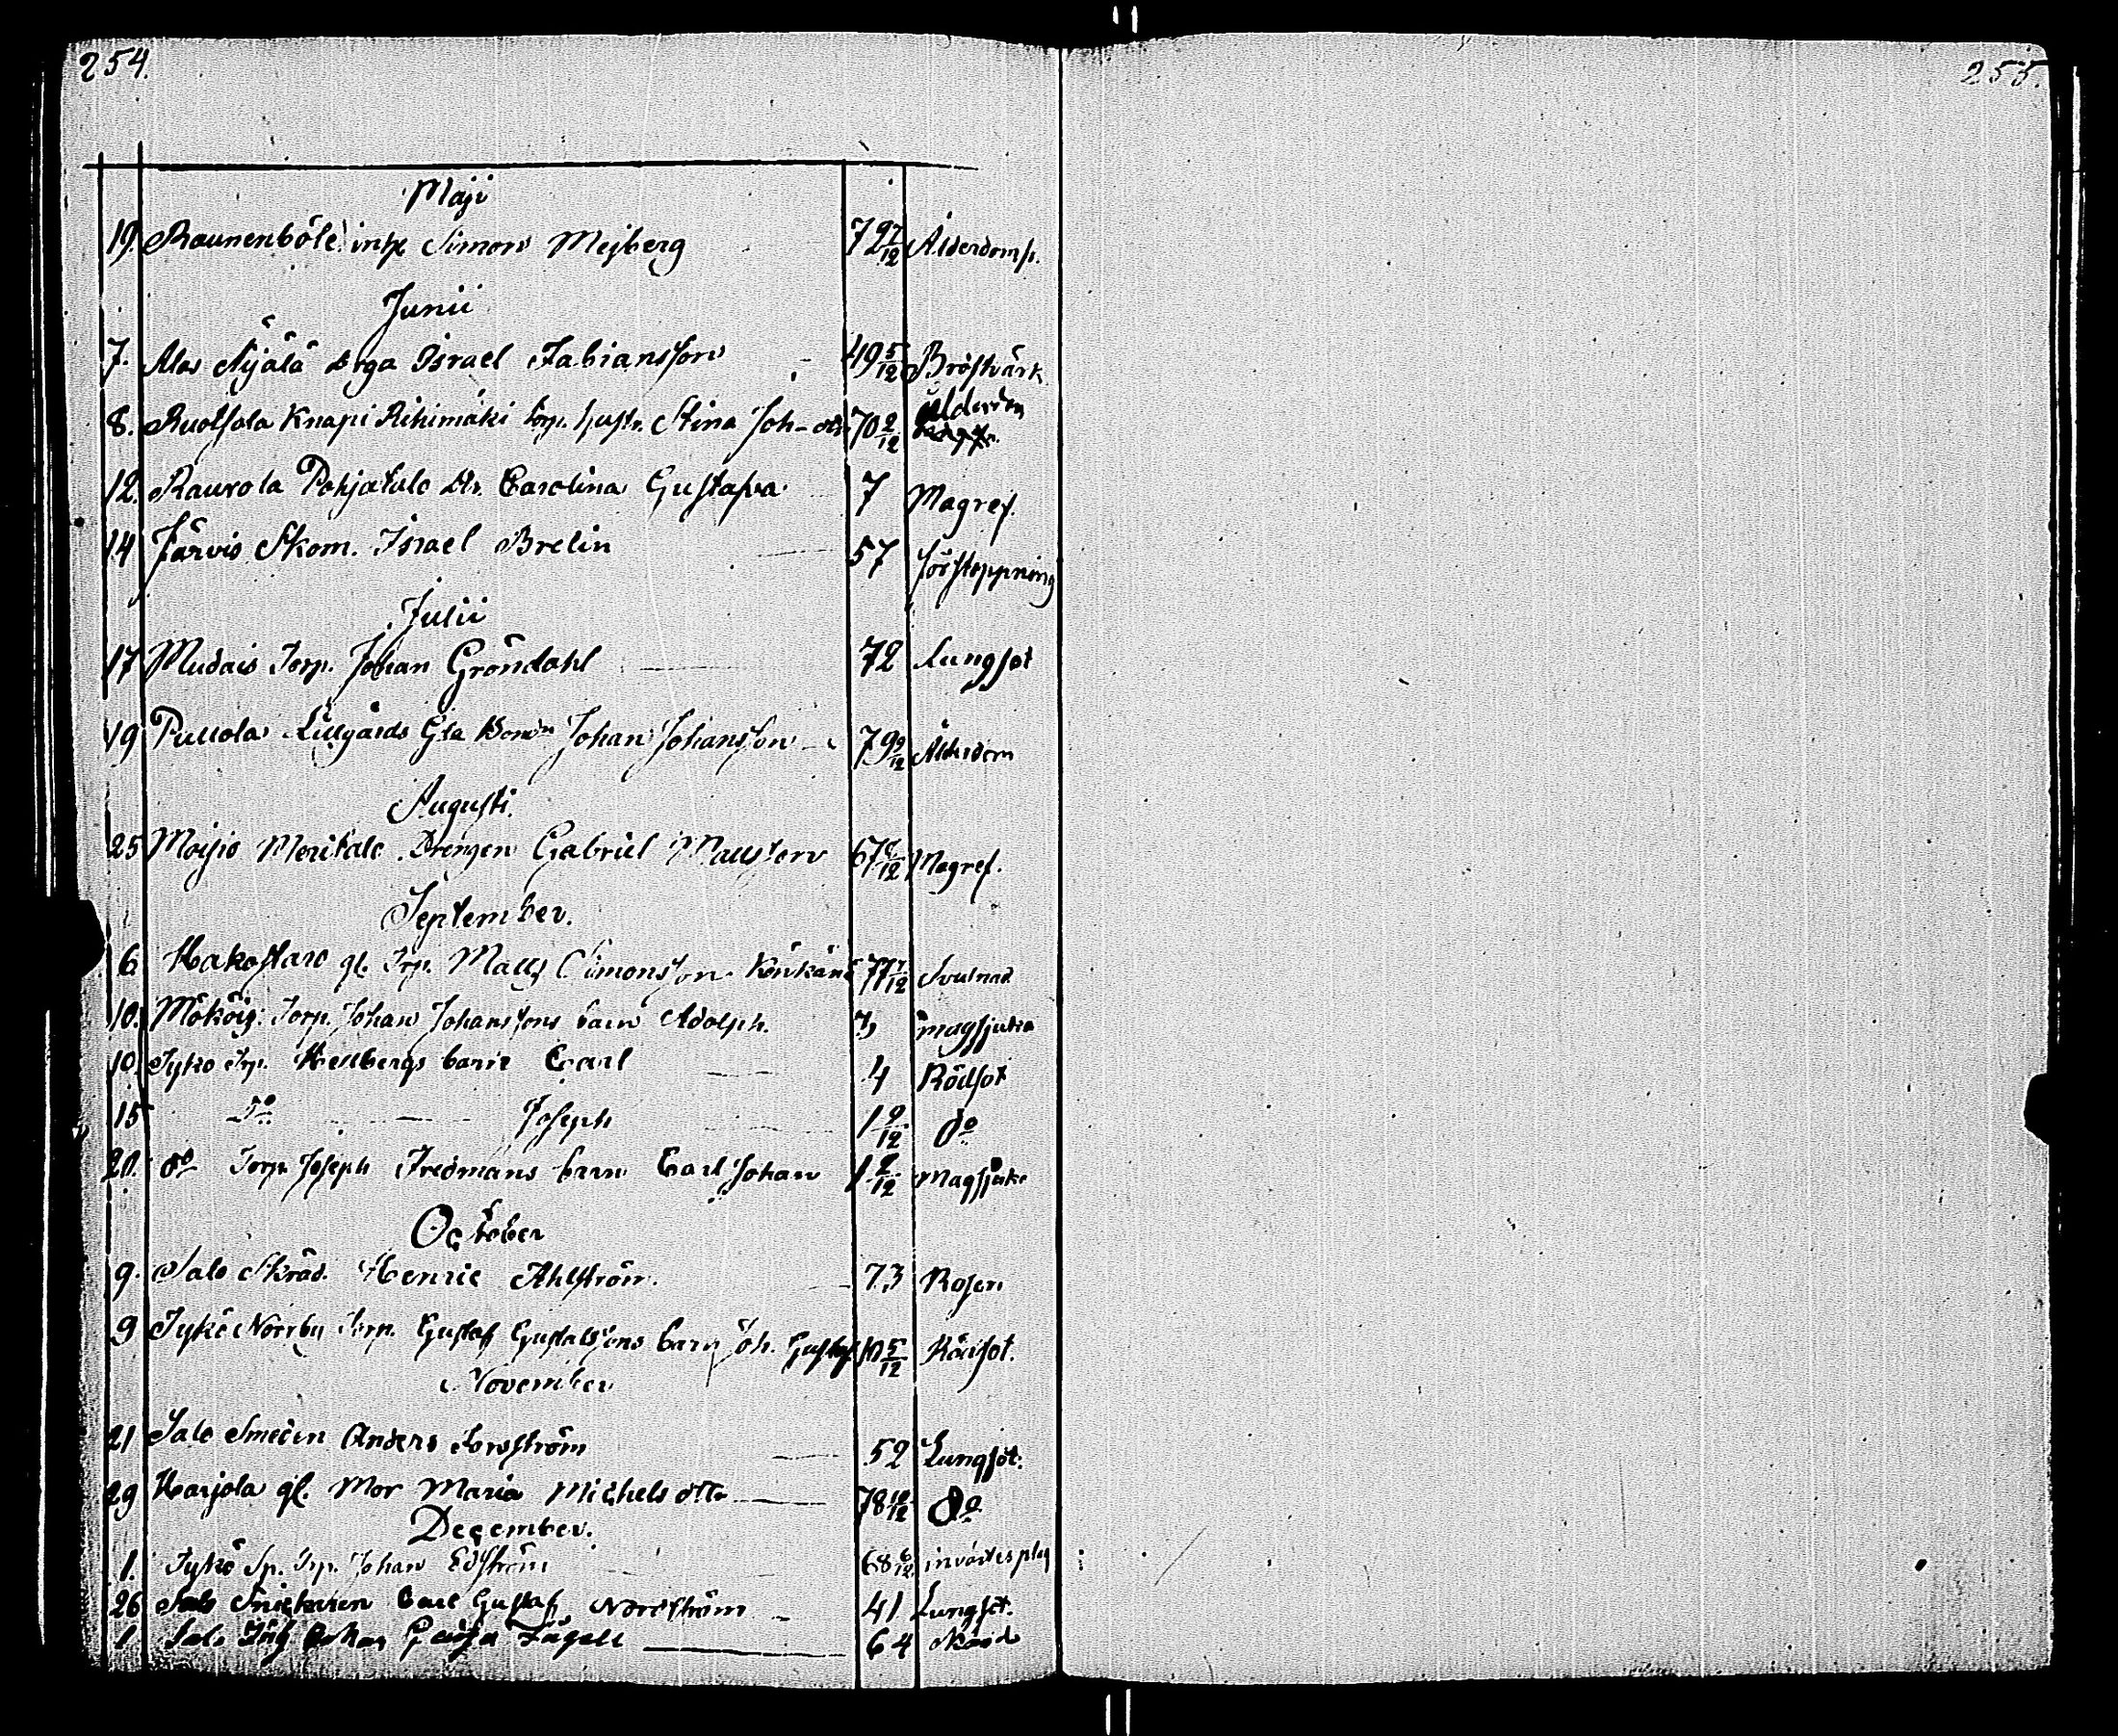 254.
255.
Maji
19. Raunenböle inh Simon Mejberg 72 7/12 Ålderdoms.
Junii
7. Alos Nÿälä drga Israel Fabiansson 49 5/12 Bröstvärk
8. Ruotsala Knapi Rihimäki Torp. hustr. Stina Joh-dtr 70 2/12 Ålderdom
12. Raurola Pohjatalo dtr. Carolina Gustafva 7 Magref.
14 Järvis Skom. Israel Brelin 57 förstoppning
Julii
17 Mudais Torp. Johan Gröndahl 72 Lungsot
19 Pullola Lillgårds Gla Bonden Johan Johansson 79 9/12 Ålderdom
Augusti.
25 Moisio Meritalo Drengen Gabriel Mattsson 67 /12 Magref.
September.
6 Hakostaro gl. Trp. Matts Simonsson Könkänä 77 /12 Svulnad
10. Mököis: Torp. Johan Johanssons barn Adolph. 3 magsjuka
10. Tyko Trp. Hellbergs barn Carl 4 Rödsot
15 Do Joseph 1 9/12 do
20. do Torp. Joseph Fredmans barn Carl Johan 1 2/12 Magsjuka
October
9. Salo Skräd. Henric Ahlström. 73 Rosen
9 Tykö Norrby Torp. Gustaf Gustafssons barn Joh. Gustaf 10 5/12 Rödsot.
November
21 Salo Smeden Anders Forsström 52 Lungsot.
29 Karjola gl. Mor Maria Michelsdttr 78 10/12 do
December.
1. Tykö Sp. Trp. Johan Edström 68 6/12 invärtes plåg
26 Salo Snickaren Carl Gustaf Nordström 41 Lungsot.
1 Salo Fågell 64